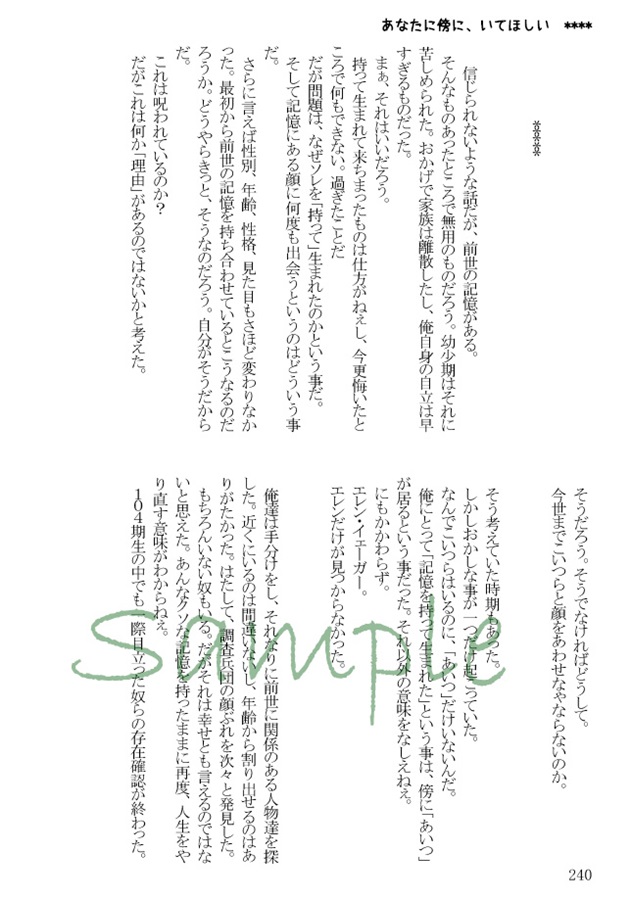 あなたに傍に、いてほしい　****
****
信じられないような話だが、前世の記憶がある。
そんなものあったところで無用のものだろう。幼少期はそれに
苦しめられた。おかげで家族は離散したし、俺自身の自立は早
すぎるものだった。
まぁ、それはいいだろう。
持って生まれて来ちまったものは仕方がねぇし、今更悔いたと
ころで何もできない。過ぎたことだ
だが問題は、なぜソレを「持って」生まれたのかという事だ。
そして記憶にある顔に何度も出会うというのはどういう事
だ。
さらに言えば性別、年齢、性格、見た目もさほど変わりなか
った。最初から前世の記憶を持ち合わせているとこうなるのだ
ろうか。どうやらきっと、そうなのだろう。自分がそうだから
だ。
これは呪われているのか？
だがこれは何か「理由」があるのではないかと考えた。
そうだろう。そうでなければどうして。
今世までこいつらと顔をあわせなゃならないのか。
そう考えていた時期もあった。
しかしおかしな事が一つだけ起こっていた。
なんでこいつらはいるのに、「あいつ」だけいないんだ。
俺にとって「記憶を持って生まれた」という事は、傍に「あいつ」
が居るという事だった。それ以外の意味をなしえねぇ。
にもかかわらず。
エレン・イェーガー。
エレンだけが見つからなかった。
俺達は手分けをし、それなりに前世に関係のある人物達を探
した。近くにいるのは間違いないし、年齢から割り出せるのはあ
りがたかった。はたして、調査兵団の顔ぶれを次々と発見した。
もちろんいない奴もいる。だがそれは幸せとも言えるのではな
いと思えた。あんなクソな記憶を持ったままに再度、人生をや
り直す意味がわからねぇ。
１０４期生の中でも一際目立った奴らの存在確認が終わった。
Sample
240